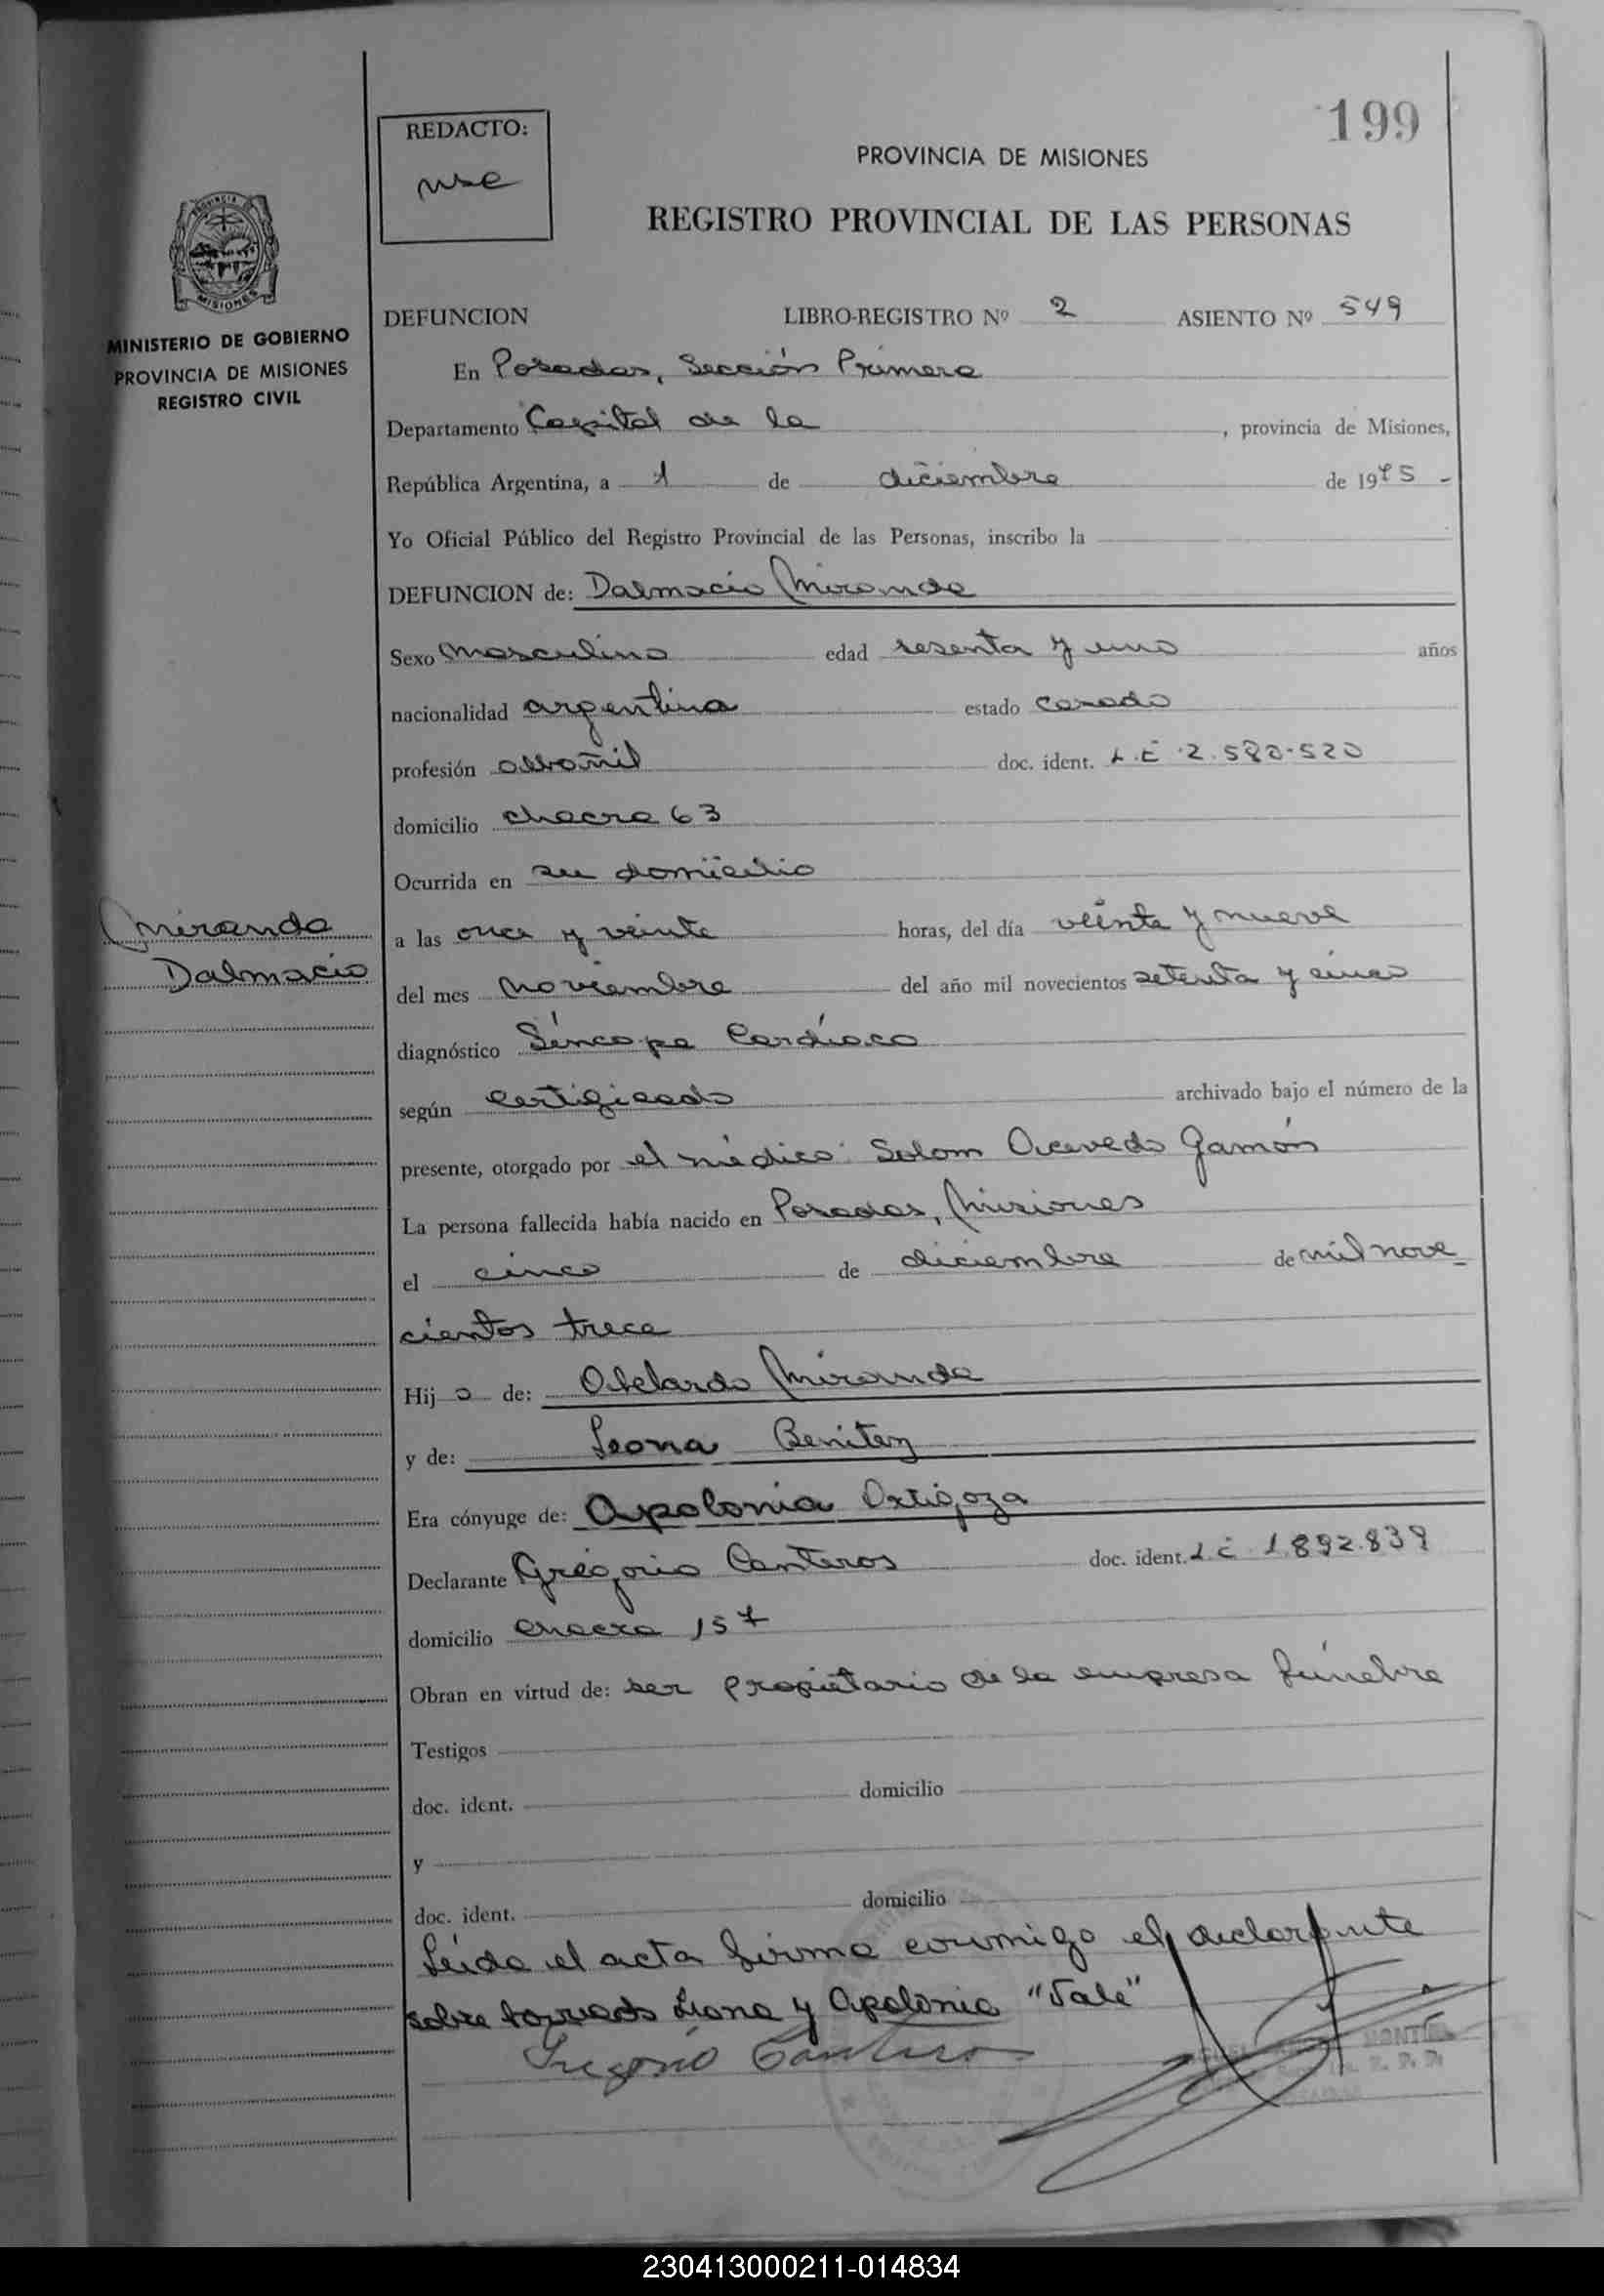 199
REDACTO:
PROVINCIA DE MISIONES
REGISTRO PROVINCIAL DE LAS PERSONAS
MISIONES
MINISTERIO DE GOBIERNO
PROVINCIA DE MISIONES
REGISTRO CIVIL
DEFUNCION LIBRO-REGISTRO Nº 2 ASIENTO Nº 549
En Posadas, Sección Primera
Departamento Capital de la, provincia de Misiones,
República Argentina, a 1 de diciembre de 1975 -
Yo Oficial Público del Registro Provincial de las Personas, inscribo la
DEFUNCION de: Dalmacio Miranda
Sexo Masculino edad sesenta y uno años
nacionalidad argentina estado casado
profesión albañil doc. ident. L.E 2.580.520
domicilio chacra 63
Ocurrida en su domicilio
Miranda
Dalmacio
a las once y veinte horas, del día veinte y nueve
del mes Noviembre del año mil novecientos setenta y cinco
diagnóstico Síncope Cardíaco
según certificado archivado bajo el número de la
presente, otorgado por el médico: Solom Acevedo Gamón
La persona fallecida había nacido en Posadas, Misiones
el cinco de diciembre de mil nove
cientos trece
Hijo de: Abelardo Miranda
y de: Leona Benitez
Era cónyuge de: Apolonia Ortigoza
Declarante Gregorio Canteros doc. ident. L.E 1.892.839
domicilio chacra 157
Obran en virtud de: ser propietario de la empresa fúnebre
Testigos
doc. ident. domicilio
y
doc. ident. domicilio
Leída el acta firma conmigo el declarante
sobre borrado Leona y Apolonia "Vale"
Gregorio Canteros
230413000211-014834